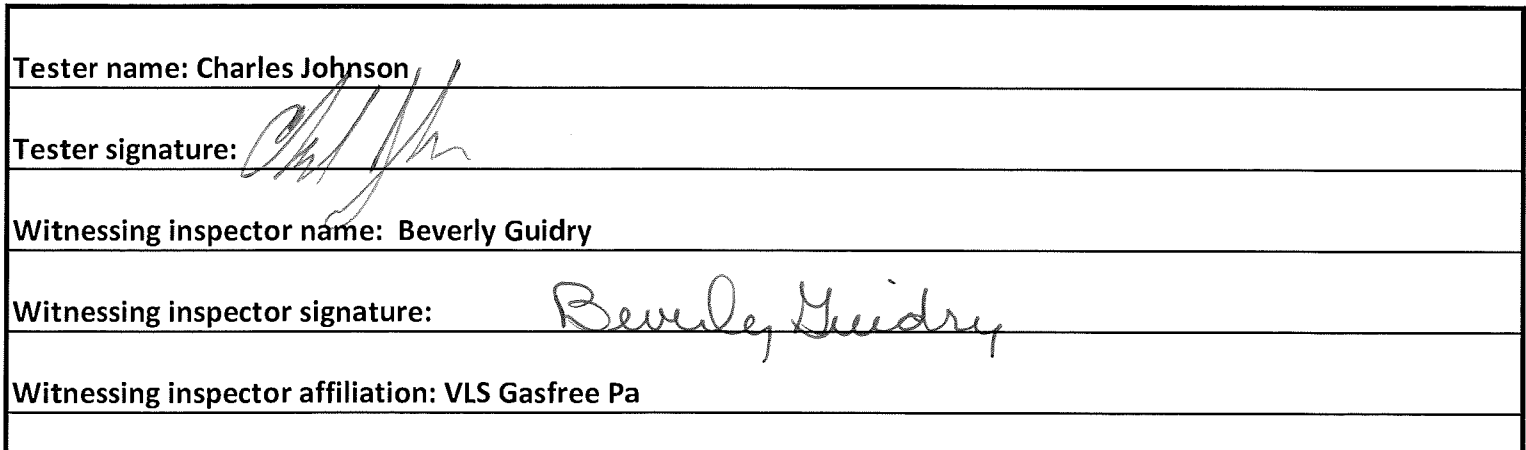 Tester name: Charles Johnson
Tester signature:
Witnessing inspector name: Beverly Guidry
Witnessing inspector signature: Beverly Guidry
Witnessing inspector affiliation: VLS Gasfree Pa